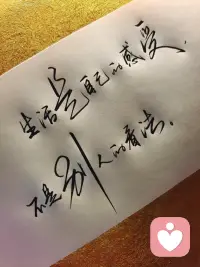 生活是自己的感受,
不是别人的看法,